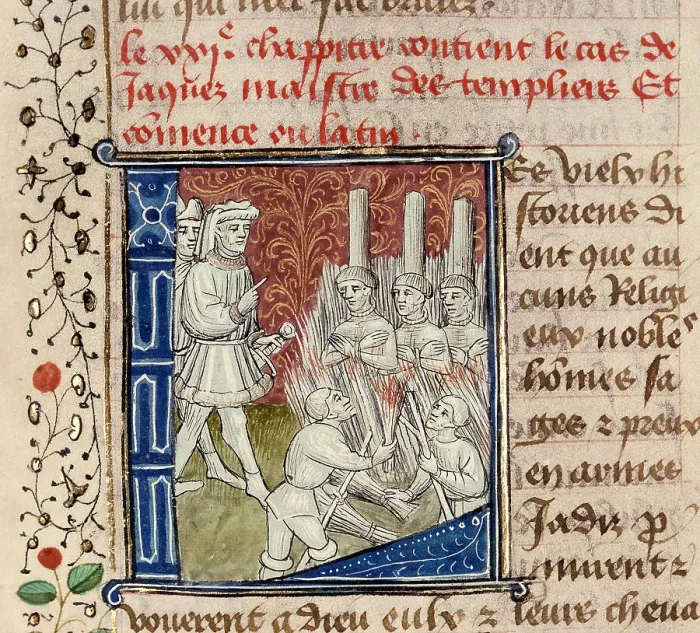 lui qui met sa
le xxjᵉ. chappitre contient le cas de
Jaques maistre des templiers Et
cōmence ou latin .
Es vielx hi
storiens di
ent que au
cuns Religi
eux nobleˢ
hōmes sa
ges ⁊ preux
en armes
Jadiz p
mirent ⁊
vouerent a dieu eulx ⁊ leurs cheua